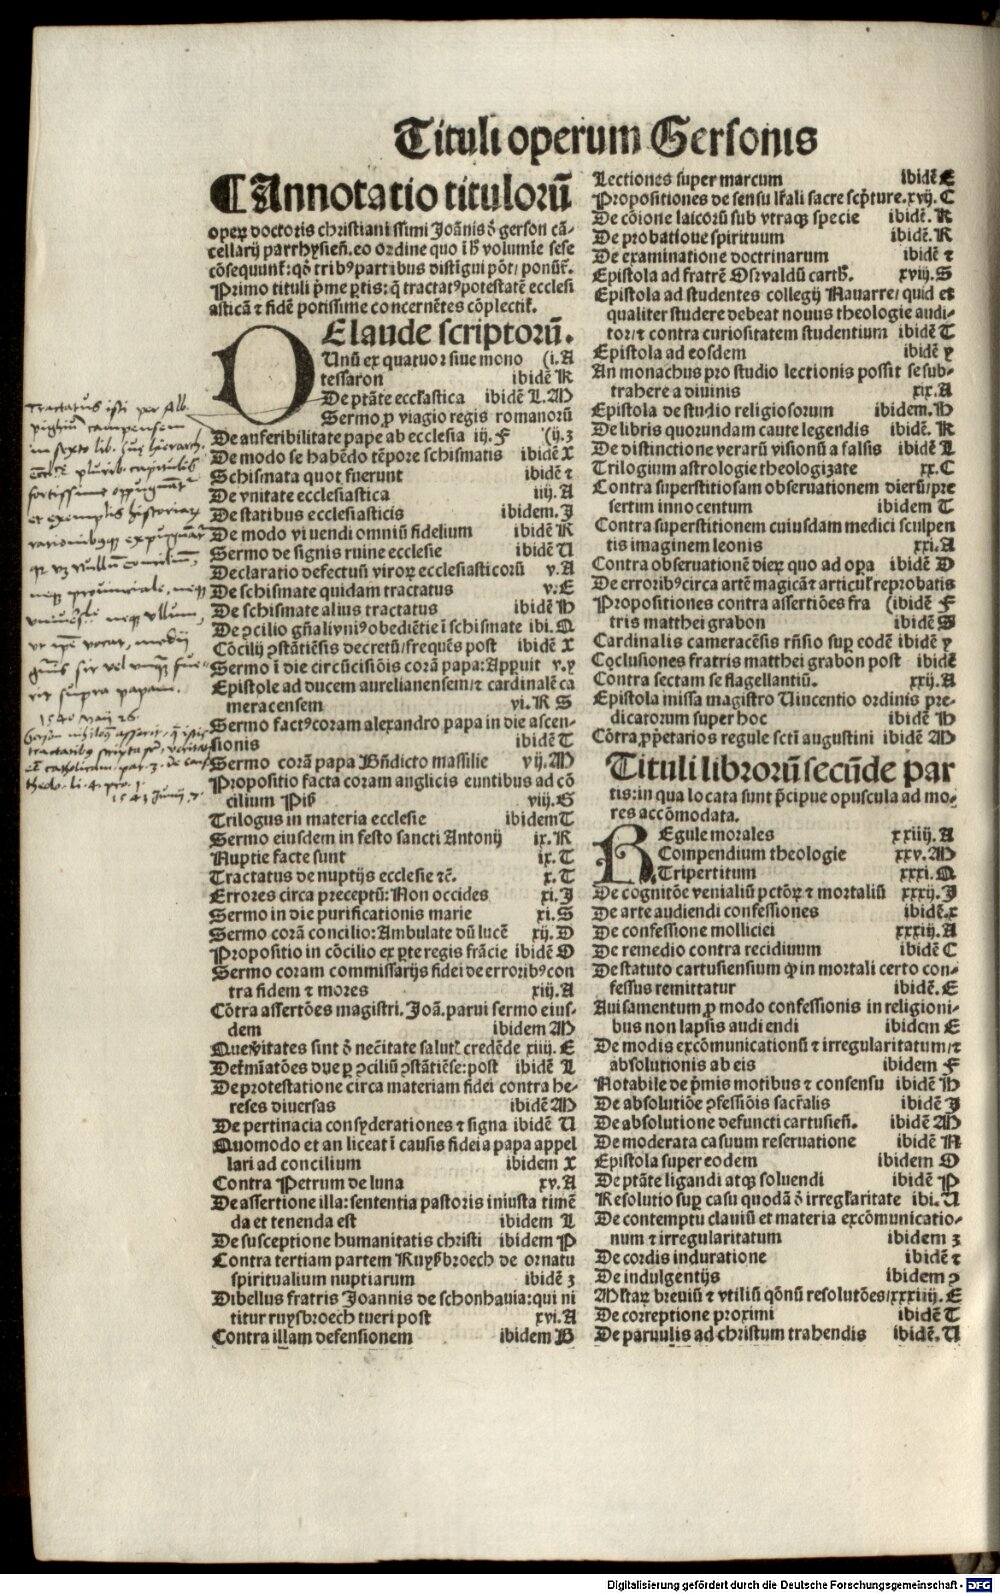 Tituli operum Gersonis
¶Annotatio titulorū
operꝝ doctoris christianissimi Joānis ō gerson cā-
cellarij parrhysieñ. eo ordine quo ī hꝰ volumīe sese
cōsequunt᷑: qō tribꝰ partibus distīgui pōt/ ponūt᷑.
Primo tituli p̄me ꝑtis: q̄ tractatꝰ potestatē ecclesi
asticā ⁊ fidē potissime concernētes cōplectit᷑.
DE laude scriptorū.
Unū ex quatuor siue mono (i.A
tessaron ibidē K
De ptāte eccl'astica ibidē L.M
Sermo ꝓ viagio regis romanorū
De auferibilitate pape ab ecclesia iij.F (ij.z
De modo se habēdo tēpore schismatis ibidē X
Schismata quot fuerunt ibidē ⁊
De vnitate ecclesiastica iiij.A
De statibus ecclesiasticis ibidem.J
De modo viuendi omniū fidelium ibidē K
Sermo de signis ruine ecclesie ibidē U
Declaratio defectuū viroꝝ ecclesiasticorū v.A
De schismate quidam tractatus v.E
De schismate alius tractatus ibidē H
De ꝯcilio gñali vniꝰ obediētie ī schismate ibi.Q
Cōcilij ꝯstātiēsis decretū/frequēs post ibidē X
Sermo ī die circūcisiōis corā papa: Apꝑuit v.y
Epistole ad ducem aurelianensem/⁊ cardinalē ca
meracensem vi.R S
Sermo factꝰ coram alexandro papa in die ascen-
sionis ibidē T
Sermo corā papa Bñdicto massilie vij.M
Propositio facta coram anglicis euntibus ad cō
cilium Pis̄ viij.G
Trilogus in materia ecclesie ibidem T
Sermo eiusdem in festo sancti Antonij ix.K
Nuptie facte sunt ix.T
Tractatus de nuptijs ecclesie ⁊c̄. x.T
Errores circa preceptū: Non occides xi.J
Sermo in die purificationis marie xi.S
Sermo corā concilio: Ambulate dū lucē xij.D
Propositio in cōcilio ex ꝑte regis frācie ibidē O
Sermo coram commissarijs fidei de erroribꝰ con
tra fidem ⁊ mores xiij.A
Cōtra assertōes magistri. Joā. parui sermo eius-
dem ibidem M
Que v̓itates sint ō nec̄itate salut᷑ credēde xiiij.E
Det̄mīatōes due ꝑ ꝯciliū ꝯstātiēse: post ibidē L
De protestatione circa materiam fidei contra he-
reses diuersas ibidē M
De pertinacia consyderationes ⁊ signa ibidē U
Quomodo et an liceat ī causis fidei a papa appel
lari ad concilium ibidem X
Contra Petrum de luna xv.A
De assertione illa: sententia pastoris iniusta timē
da et tenenda est ibidem L
De susceptione humanitatis christi ibidem P
Contra tertiam partem Ruysbroech de ornatu
spiritualium nuptiarum ibidē z
Libellus fratris Joannis de schonhauia: qui ni
titur ruysbroech tueri post xvi.A
Contra illam defensionem ibidem B
Lectiones super marcum ibidē E
Propositiones de sensu lr̄ali sacre scp̄ture. xvij.C
De cōione laicorū sub vtraqꝫ specie ibidē.K
De probatione spirituum ibidē.R
De examinatione doctrinarum ibidē ⁊
Epistola ad fratrē Osrvaldū carth̄. xviij.S
Epistola ad studentes collegij Nauarre/ quid et
qualiter studere debeat nouus theologie audi-
tor/⁊ contra curiositatem studentium ibidē T
Epistola ad eosdem ibidē y
An monachus pro studio lectionis possit se sub-
trahere a diuinis xix.A
Epistola de studio religiosorum ibidem.H
De libris quorundam caute legendis ibidē.K
De distinctione verarū visionū a falsis ibidē L
Trilogium astrologie theologizate xx.C
Contra superstitiosam obseruationem dierū/pre
sertim innocentum ibidem T
Contra superstitionem cuiusdam medici sculpen
tis imaginem leonis xxi.A
Contra obseruationē dierꝝ quo ad oꝑa ibidē D
De erroribꝰ circa artē magicā ⁊ articul' reprobatis
Propositiones contra assertiōes fra (ibidē F
tris matthei grabon ibidē S
Cardinalis cameracēsis rñsio suꝑ eodē ibidē y
Cōclusiones fratris matthei grabon post ibidē
Contra sectam se flagellantiū. xxij.A
Epistola missa magistro Uincentio ordinis pre-
dicatorum super hoc ibidē H
Cōtra ꝓp̄etarios regule scti augustini ibidē M
Tituli librorū secūde par
tis: in qua locata sunt p̄cipue opuscula ad mo-
res accōmodata.
REgule morales xxiiij.A
Compendium theologie xxv.M
Tripertitum xxxi.Q
De cognitōe venialiū pctōꝝ ⁊ mortaliū xxxij.J
De arte audiendi confessiones ibidē.x
De confessione molliciei xxxiij.A
De remedio contra recidiuum ibidē C
De statuto cartusiensium ꝙ in mortali certo con-
fessus remittatur ibidē.E
Auisamentum ꝓ modo confessionis in religioni-
bus non lapsis audiendi ibidem E
De modis excōmunicationū ⁊ irregularitatum/⁊
absolutionis ab eis ibidem F
Notabile de p̄mis motibus ⁊ consensu ibidē H
De absolutiōe ꝯfessiōis sacr̄alis ibidē J
De absolutione defuncti cartusieñ. ibidē M
De moderata casuum reseruatione ibidē N
Epistola super eodem ibidem O
De ptāte ligandi atqꝫ soluendi ibidē P
Resolutio suꝑ casu quodā ō irregl'aritate ibi.U
De contemptu clauiū et materia excōmunicatio-
num ⁊ irregularitatum ibidem z
De cordis induratione ibidē ⁊
De indulgentijs ibidem ꝯ
Mltaꝝ breuiū ⁊ vtiliū qōnū resolutōes/xxxiiij.E
De correptione proximi ibidē T
De paruulis ad christum trahendis ibidē.U
Tractatus isti per Alb.
pighium campensem
in sexto lib. suę hierarch.
fortissime oppugnāt᷑
et exemplis historiaꝝ
1541 Maij 26.
Digitalisierung gefördert durch die Deutsche Forschungsgemeinschaft - DFG